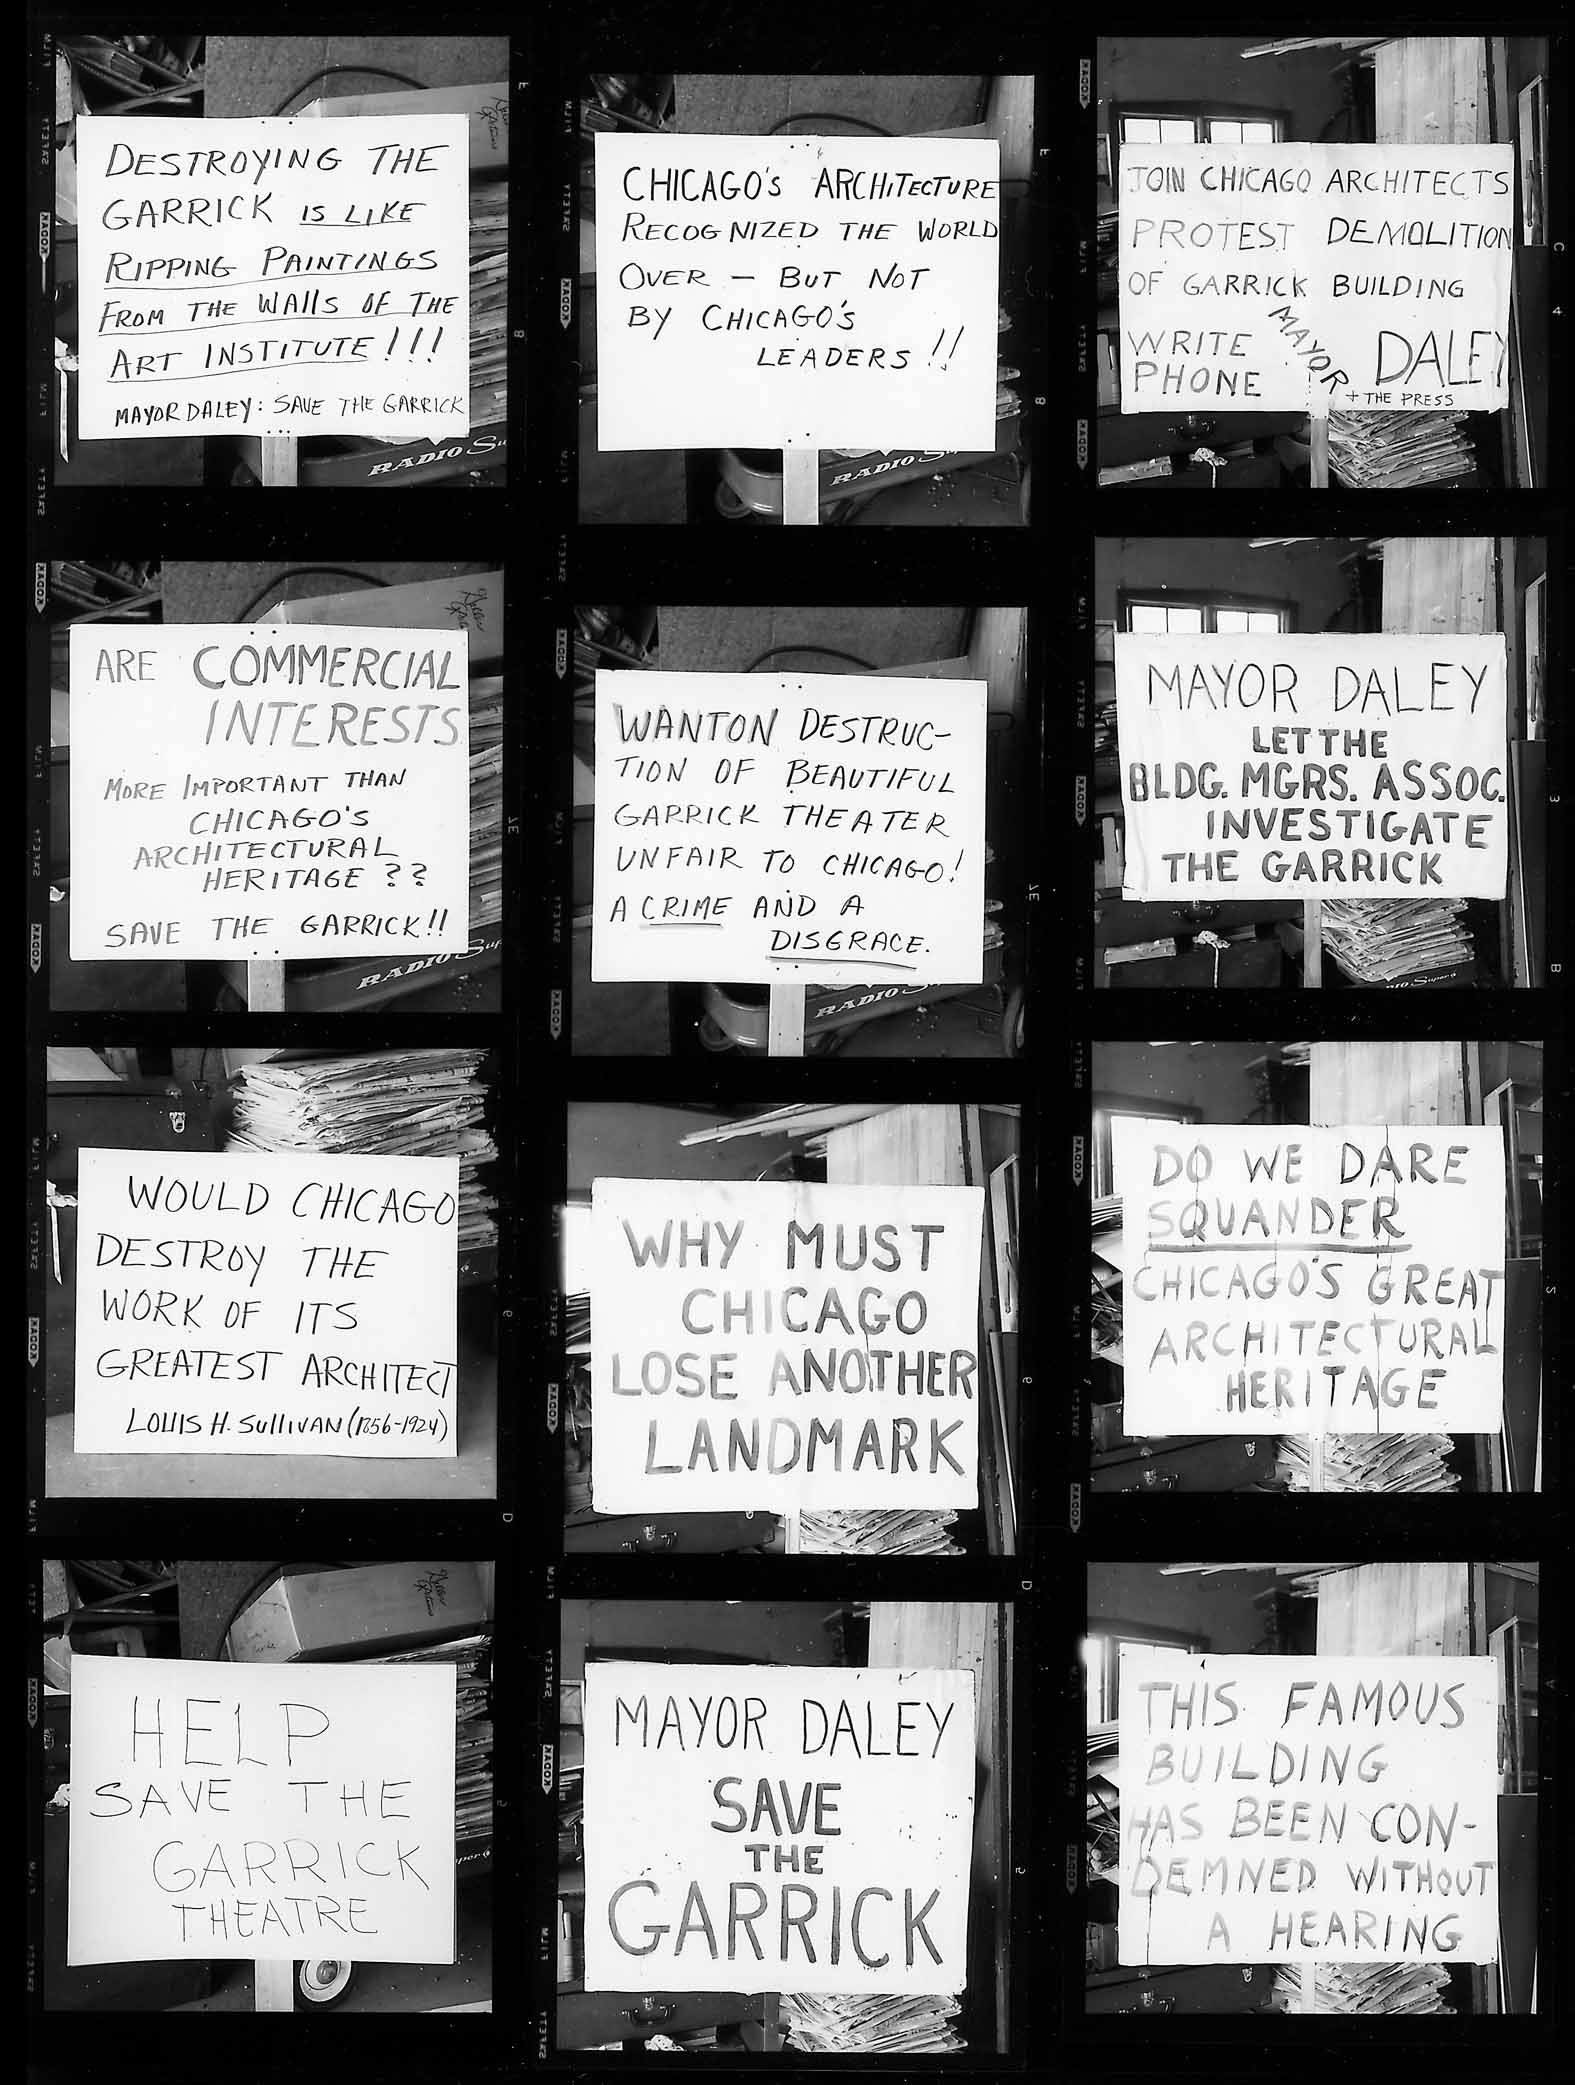 DESTROYING THE
GARRICK IS LIKE
RIPPING PAINTINGS
FROM THE WALLS OF THE
ART INSTITUTE!!!
MAYOR DALEY: SAVE THE GARRICK
RADIO Su
ARE COMMERCIAL
INTERESTS
MORE IMPORTANT THAN
CHICAGO'S
ARCHITECTURAL
HERITAGE??
SAVE THE GARRICK!!
RADIO Sup
WOULD CHICAGO
DESTROY THE
WORK OF ITS
GREATEST ARCHITECT
LOUIS H. SULLIVAN (1856-1924)
HELP
SAVE THE
GARRICK
THEATRE
CHICAGO'S ARCHITECTURE
RECOGNIZED THE WORLD
OVER — BUT NOT
BY CHICAGO'S
LEADERS!!
RADIO Su
WANTON DESTRUC-
TION OF BEAUTIFUL
GARRICK THEATER
UNFAIR TO CHICAGO!
A CRIME AND A
DISGRACE.
RADIO Su
WHY MUST
CHICAGO
LOSE ANOTHER
LANDMARK
MAYOR DALEY
SAVE
THE
GARRICK
JOIN CHICAGO ARCHITECTS
PROTEST DEMOLITION
OF GARRICK BUILDING
WRITE
PHONE
MAYOR
DALEY
+ THE PRESS
MAYOR DALEY
LET THE
BLDG. MGRS. ASSOC.
INVESTIGATE
THE GARRICK
DO WE DARE
SQUANDER
CHICAGO'S GREAT
ARCHITECTURAL
HERITAGE
THIS FAMOUS
BUILDING
HAS BEEN CON-
DEMNED WITHOUT
A HEARING
KODAK
SAFETY
FILM